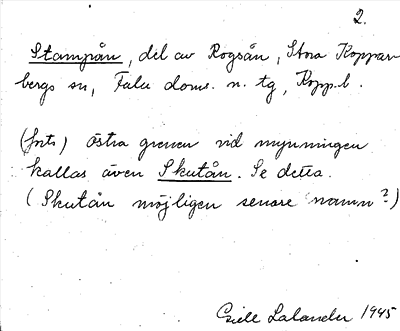 2.
Stampån, del av Rogsån, Stora Koppar-
bergs sn, Falu doms. n. tg, Kopp.b.
(forts) östra grenen vid mynningen
kallas även Skutån. Se detta.
(Skutån möjligen senare namn?)
Lalander 1945